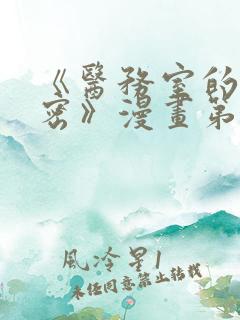 《醫務室的
密》漫畫第
風冷星1
未经同意禁止转载